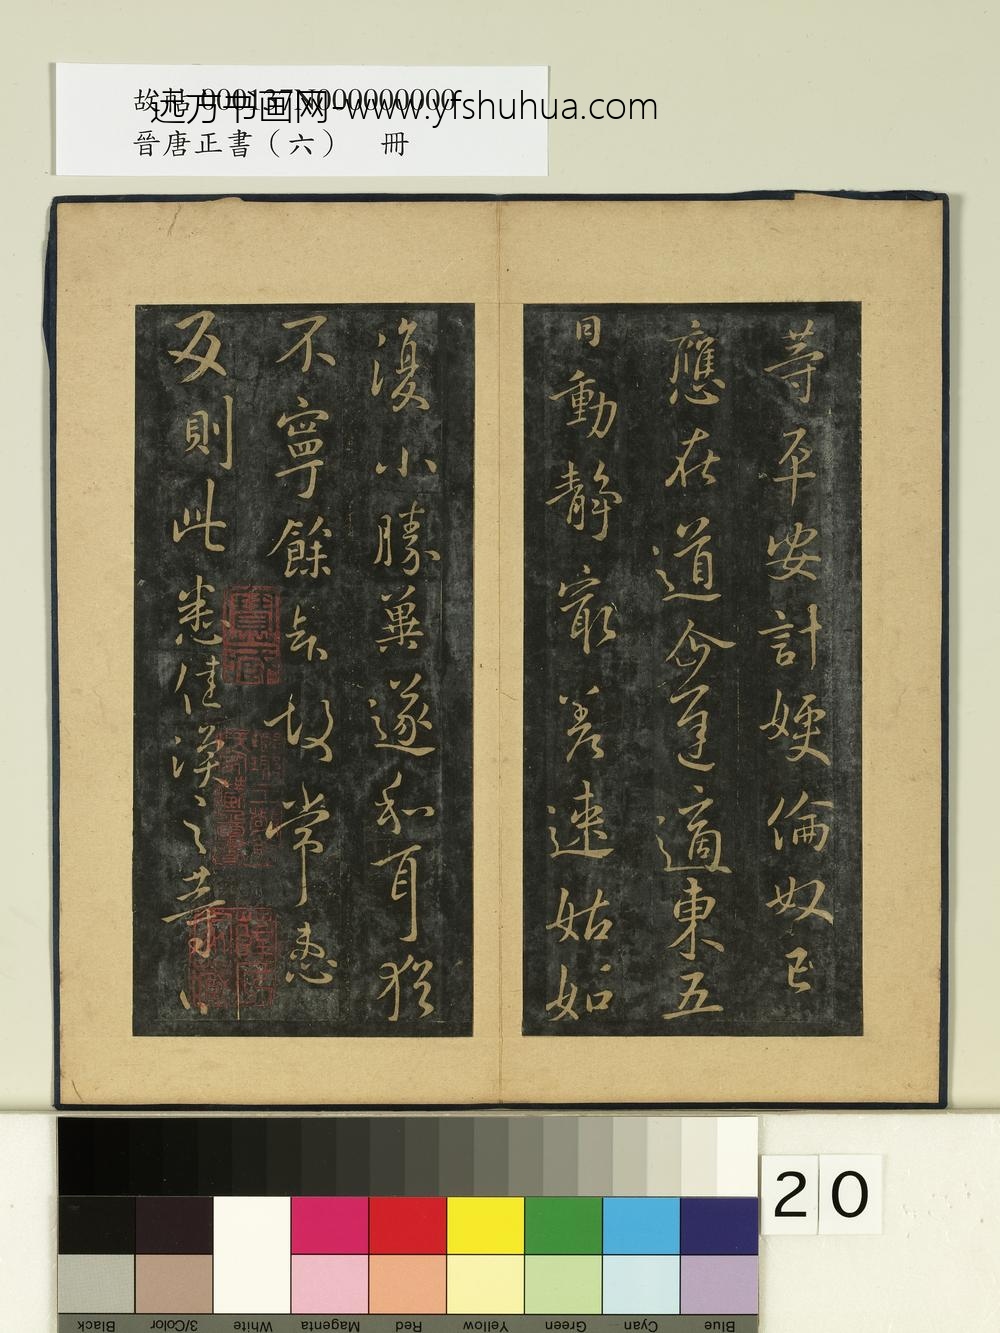 故帖 000137N000000000
远方书画网-www.yfshuhua.com
晉唐正書（六） 冊
等平安計媫倫奴已
應在道今至適東五
日動靜寂差速姑如
復小勝藥遂和耳猶
不寧餘亦故常患
反則此悉佳漢之等
20
Black 3/Color White Magenta Red Yellow Green Cyan Blue